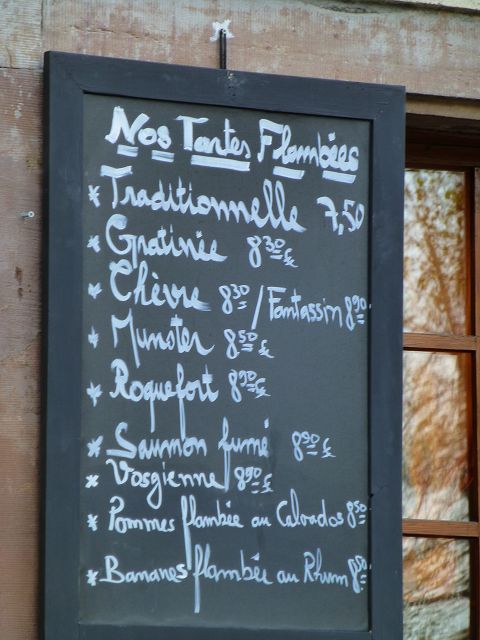 Nos Tartes Flambées
* Traditionnelle 7,50
* Gratinée 8 30 €
* Chèvre 8 30 / Fantassin 8 90
* Munster 8 50 €
* Roquefort 8 90 €
* Saumon fumé 8 90 €
* Vosgienne 8 90 €
* Pommes flambée au Calvados 8 50
* Bananes flambée au Rhum 8 50